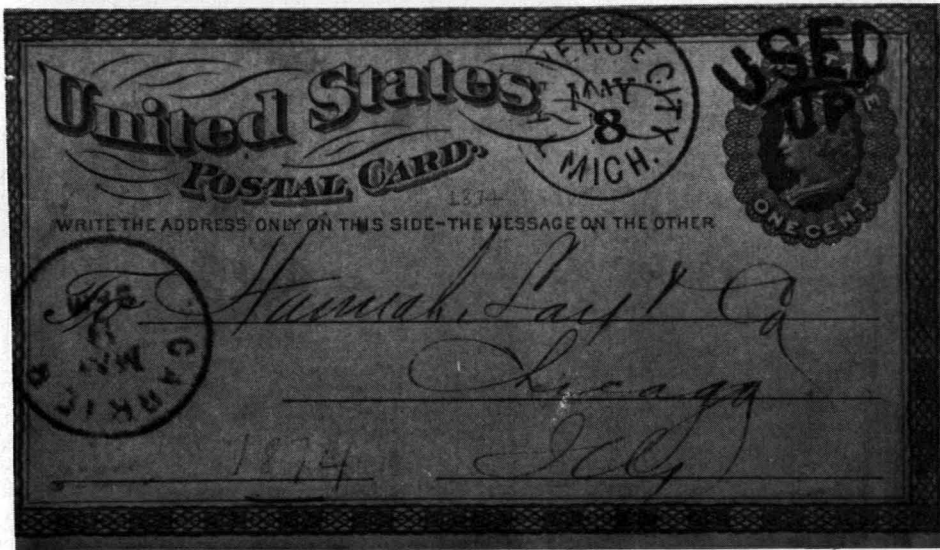 United States
POSTAL CARD.
TRAVERSE CITY
MAY
8
MICH.
USED
UP
ONE CENT
1874
WRITE THE ADDRESS ONLY ON THIS SIDE-THE MESSAGE ON THE OTHER
To Hannah, Lay & Co
Chicago
Ills
1874
CARRIER